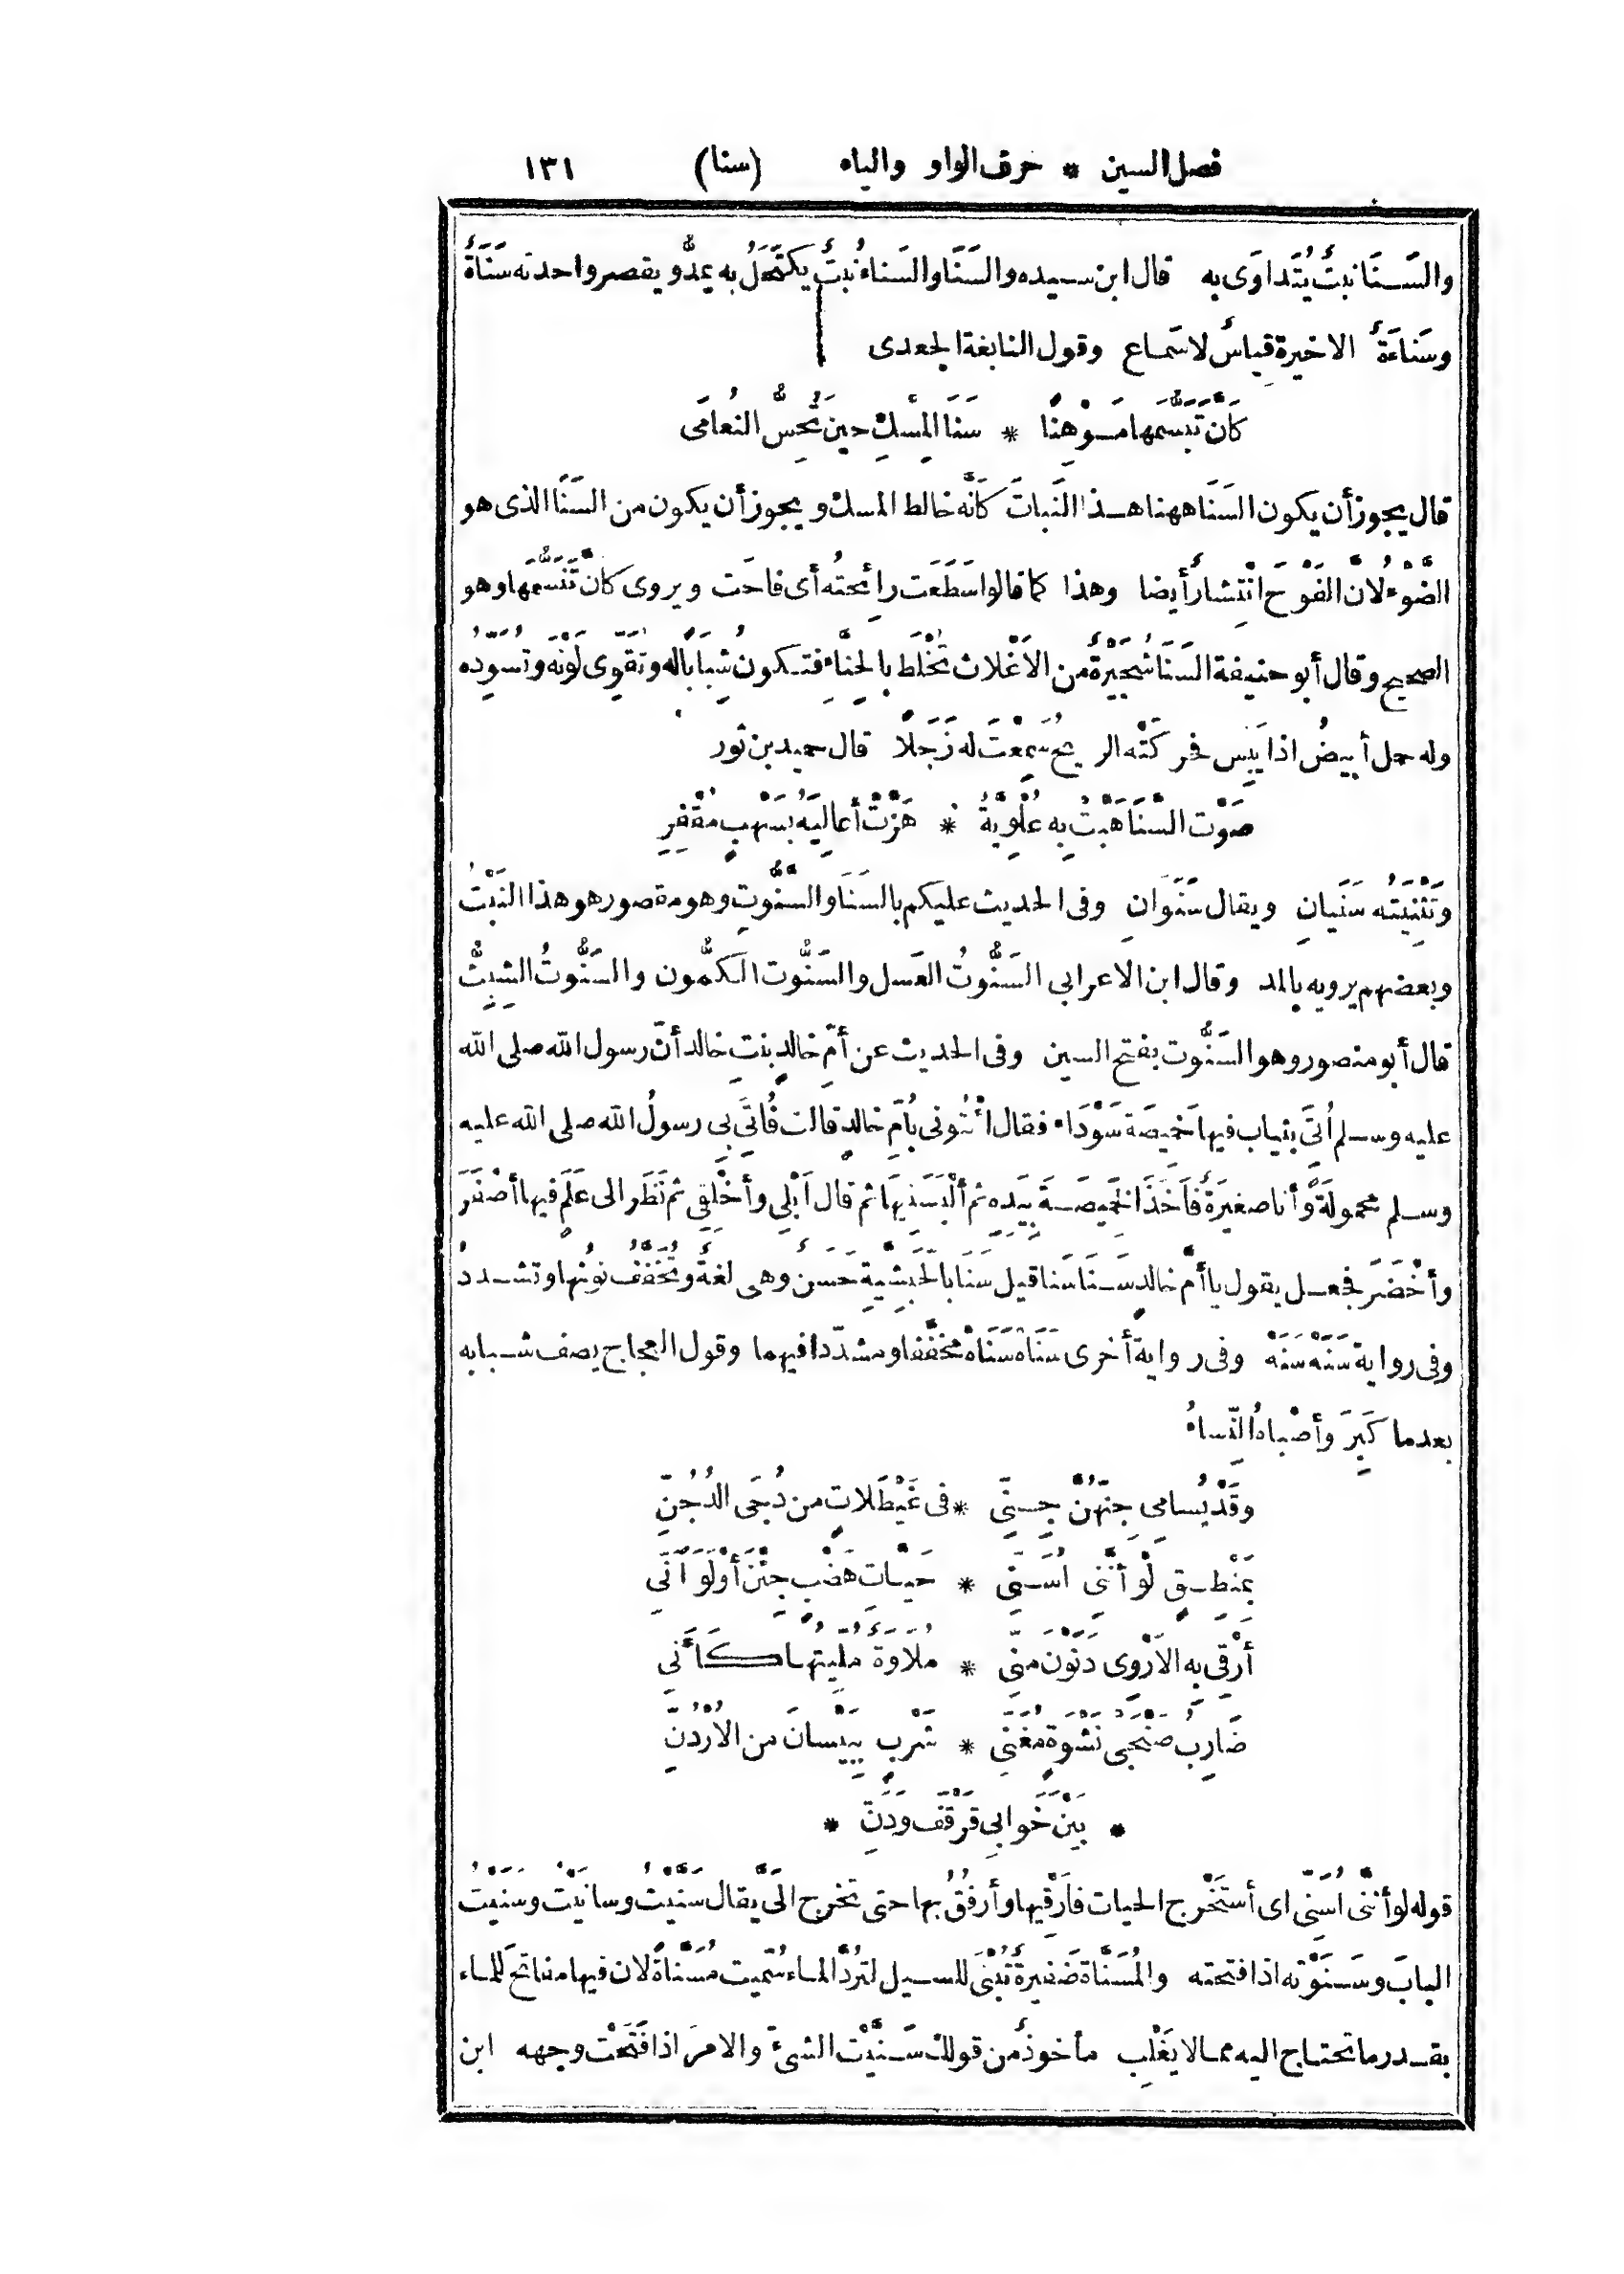 فصل السين * حرف الواو والياء (سنا) ١٣١
والسَّنَا نبتٌ يُتَداوَى به قال ابن سيده والسَّنَا والسَناء نُبتٌ يكتَحَلُ به يمدُّ ويقصر واحدته سَنَاةٌ
وسَنَاءَةٌ الاخيرة قِياسٌ لا سَماع وقول النابغة الجعدى
كَأَنَّ تَبَسُّمَها مَوْهِنًا * سَنَا المِسْكِ حينَ تُحِسُّ النُعامَى
قال يجوز أن يكون السَنَا ههنا هذا النَبات كَأَنَّه خالط المسك ويجوز أن يكون من السَنَا الذى هو
الضَّوْءُ لانَّ الفَوْحَ انْتِشارٌ أيضا وهذا كما قالوا سَطَعَت رائحتُه أى فاحَت ويروى كأَنَّ تَنَسُّمَها وهو
الصحيح وقال أبو حنيفة السَنَا شُجَيْرَةٌ من الاَغْلاث تُخْلَط بالحِنَّاء فتكون شِبَابًا له وتُقَوِّى لَوْنَه وتُسَوِّدُه
وله حمل أبيضُ اذا يَبِس فحركَتْه الريحُ سَمِعْتَ له زَجَلًا قال حميد بن ثور
صَوْتَ السَّنَا هَبَّتْ به عُلْوِيَّةٌ * هَزَّتْ أعالِيَهُ بسَهْبٍ مُقْفِرِ
وتَثْنِيَتُه سَنَيانِ ويقال سَنَوَانِ وفى الحديث عليكم بالسَنَا والسَنُّوتِ وهو مقصور هو هذا النَبْتُ
وبعضهم يرويه بالمد وقال ابن الاعرابى السَنُّوتُ العَسل والسَنُّوت الكمُّون والسَنُّوتُ الشِبِثُّ
قال أبو منصور وهو السَنُّوت بفتح السين وفى الحديث عن أمِّ خالدٍ بنتِ خالد أنّ رسول الله صلى الله
عليه وسلم أُتِىَ بثياب فيها خَمِيصَة سَوْدَاء فقال ائْتُونى بأُمّ خالدٍ قالت فأُتِىَ بى رسولُ الله صلى الله عليه
وسلم محمولَةً وأنا صغيرَةٌ فأَخَذَ الخَمِيصَةَ بيَدِه ثم ألْبَسَنِيهَا ثم قال أَبْلِى وأخْلِقِى ثم نَظَر الى عَلَمٍ فيها أصْفَرَ
وأخْضَرَ فجعل يقول يا أُمَّ خالدٍ سَنَا سَنا قيل سَنَا بالحَبَشِيَّةِ حَسَنٌ وهى لغةٌ وتُخَفَّفُ نونُها وتشددُ
وفى رواية سَنَهْ سَنَهْ وفى رواية أخرى سَنَاهْ سَنَاهْ مخفَّفا ومشدّدا فيهما وقول العجاج يصف شبابه
بعد ما كَبِرَ وأصْباهُ النِّساءُ
وقَدْ يُسامِى جِنَّهُنَّ جِنِّى * فى غَيْطَلاتٍ من دُجَى الدُجُنِّ
بمَنْطِقٍ لَوْ أنَّنى أُسَنِّى * حَيَّاتِ هَضْبٍ جِئْنَ أوْ لَوَ اَنِّى
أرْقِى به الاَرْوى دَنَوْنَ منِّى * مُلاوَةً مُلِّيتُها كَأَنِّى
ضَارِبُ صَنْجَىْ نَشْوَةٍ مُغَنِّى * شَرْبٍ بِبَيْسانَ من الاُرْدُنِّ
* بَيْنَ خَوابى قَرْقَفٍ ودَنِّ *
قوله لو أنَّنى أُسَنِّى اى أستَخْرِج الحيات فأَرْقِيها وأرفُقُ بها حتى تخرج الَىَّ يقال سَنَّيْتُ وسانَيْتُ وسَنَيْتُ
البابَ وسَنَوْته اذا فتحته والمُسَنَّاة ضَفيرةٌ تُبْنَى للسيل لتَرُدَّ الماء سُمِّيت مُسَنَّاةً لان فيها مفاتحَ للماء
بقدر ما تحتاج اليه مما لا يَغْلِب مأخوذٌ من قولك سَنَّيْت الشىَّءَ والامرَ اذا فَتَحْت وجهه ابن